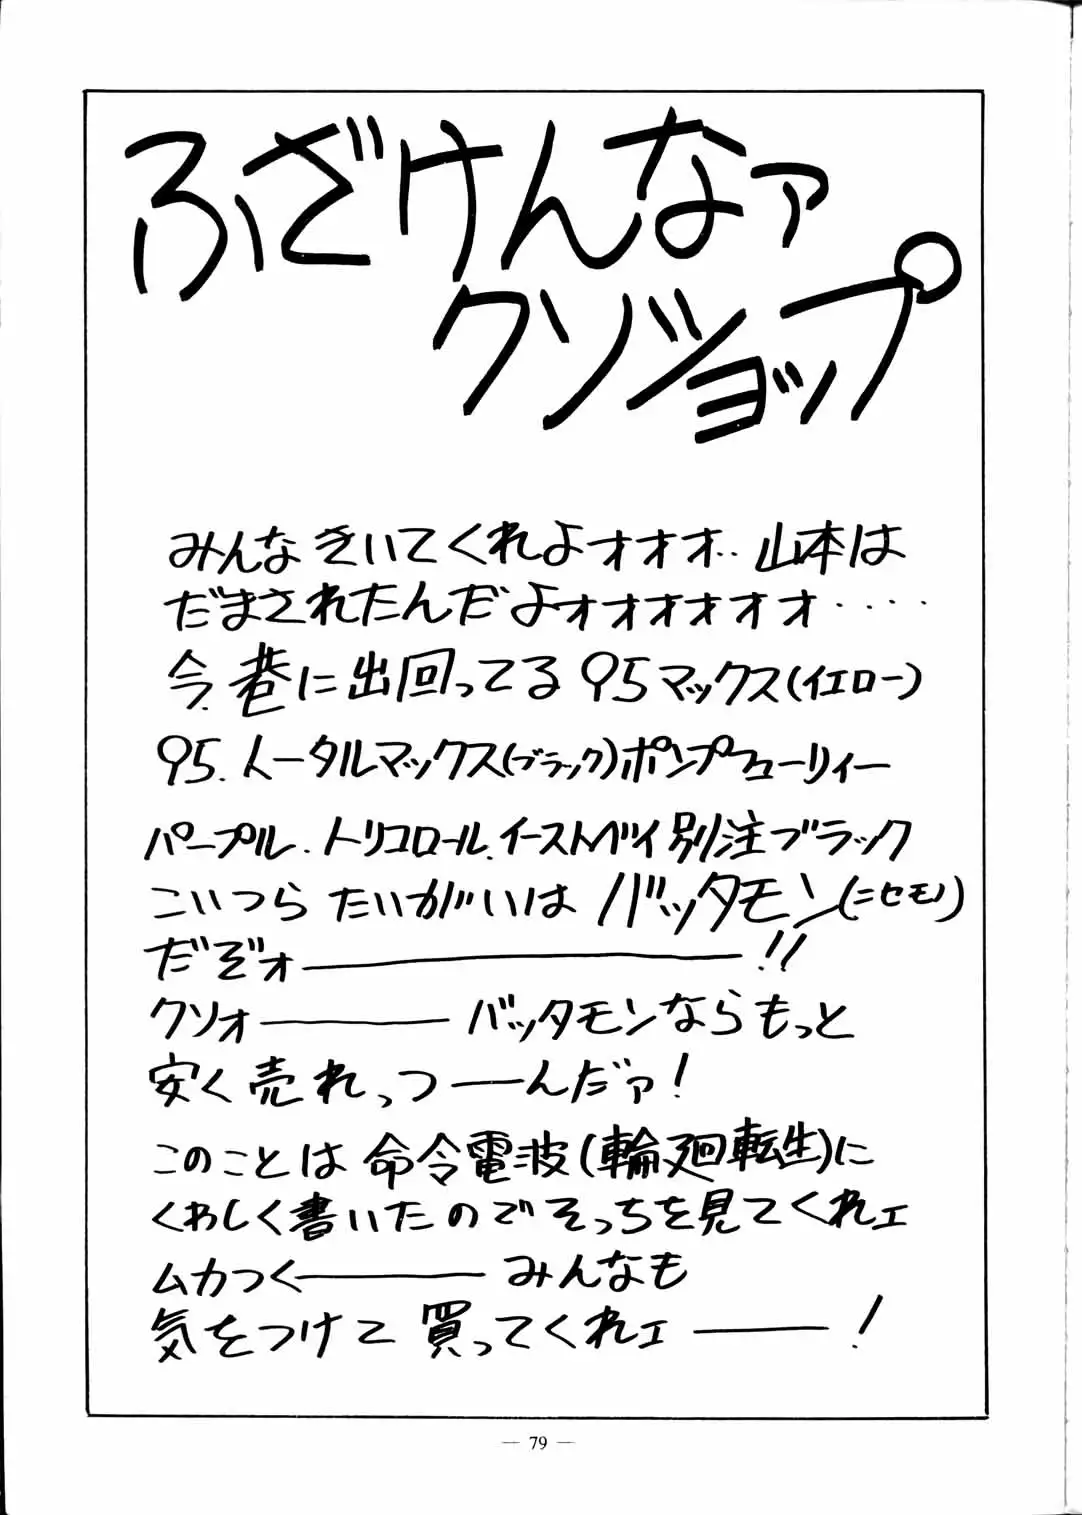 ふざけんなァ
クソショップ
みんなきいてくれよォオオ‥山本は
だまされたんだよォォオオオオ‥‥
今.巷に出回ってる95マックス(イエロー)
95.トータルマックス(ブラック)ポンプフューリィー
パープル.トリコロール.イーストベイ別注ブラック
こいつらたいがいはバッタモン(ニセモノ)
だぞォ――――!!
クソォ――バッタモンならもっと
安く売れっつ――んだァ!
このことは命令電波(輪廻転生)に
くわしく書いたのでそっちを見てくれェ
ムカつく――みんなも
気をつけて買ってくれェ――!
— 79 —